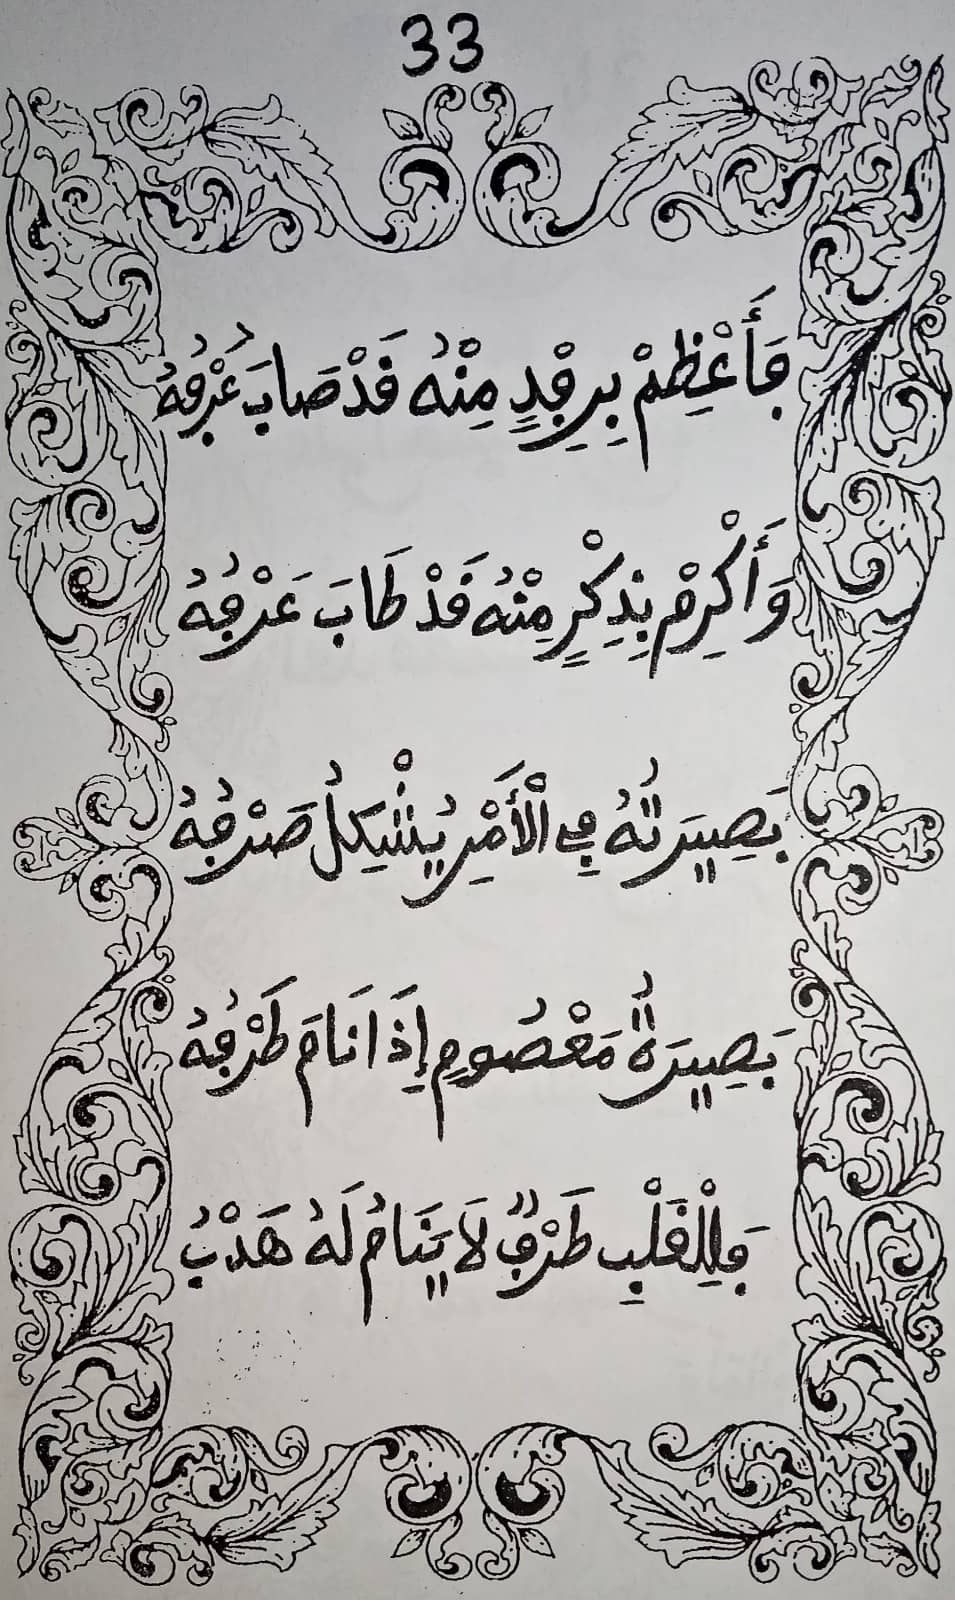 33
فَأَعْظِمْ بِرِفْدٍ مِنْهُ قَدْ صَابَ عُرْفُهُ
وَأَكْرِمْ بِذِكْرٍ مِنْهُ قَدْ طَابَ عَرْفُهُ
بَصِيرَتُهُ فِي الْأَمْرِ يُشْكِلُ صَرْفُهُ
بَصِيرَةُ مَعْصُومٍ إِذَا نَامَ طَرْفُهُ
فَلِلْقَلْبِ طَرْفٌ لَا يَنَامُ لَهُ هَدْبُ